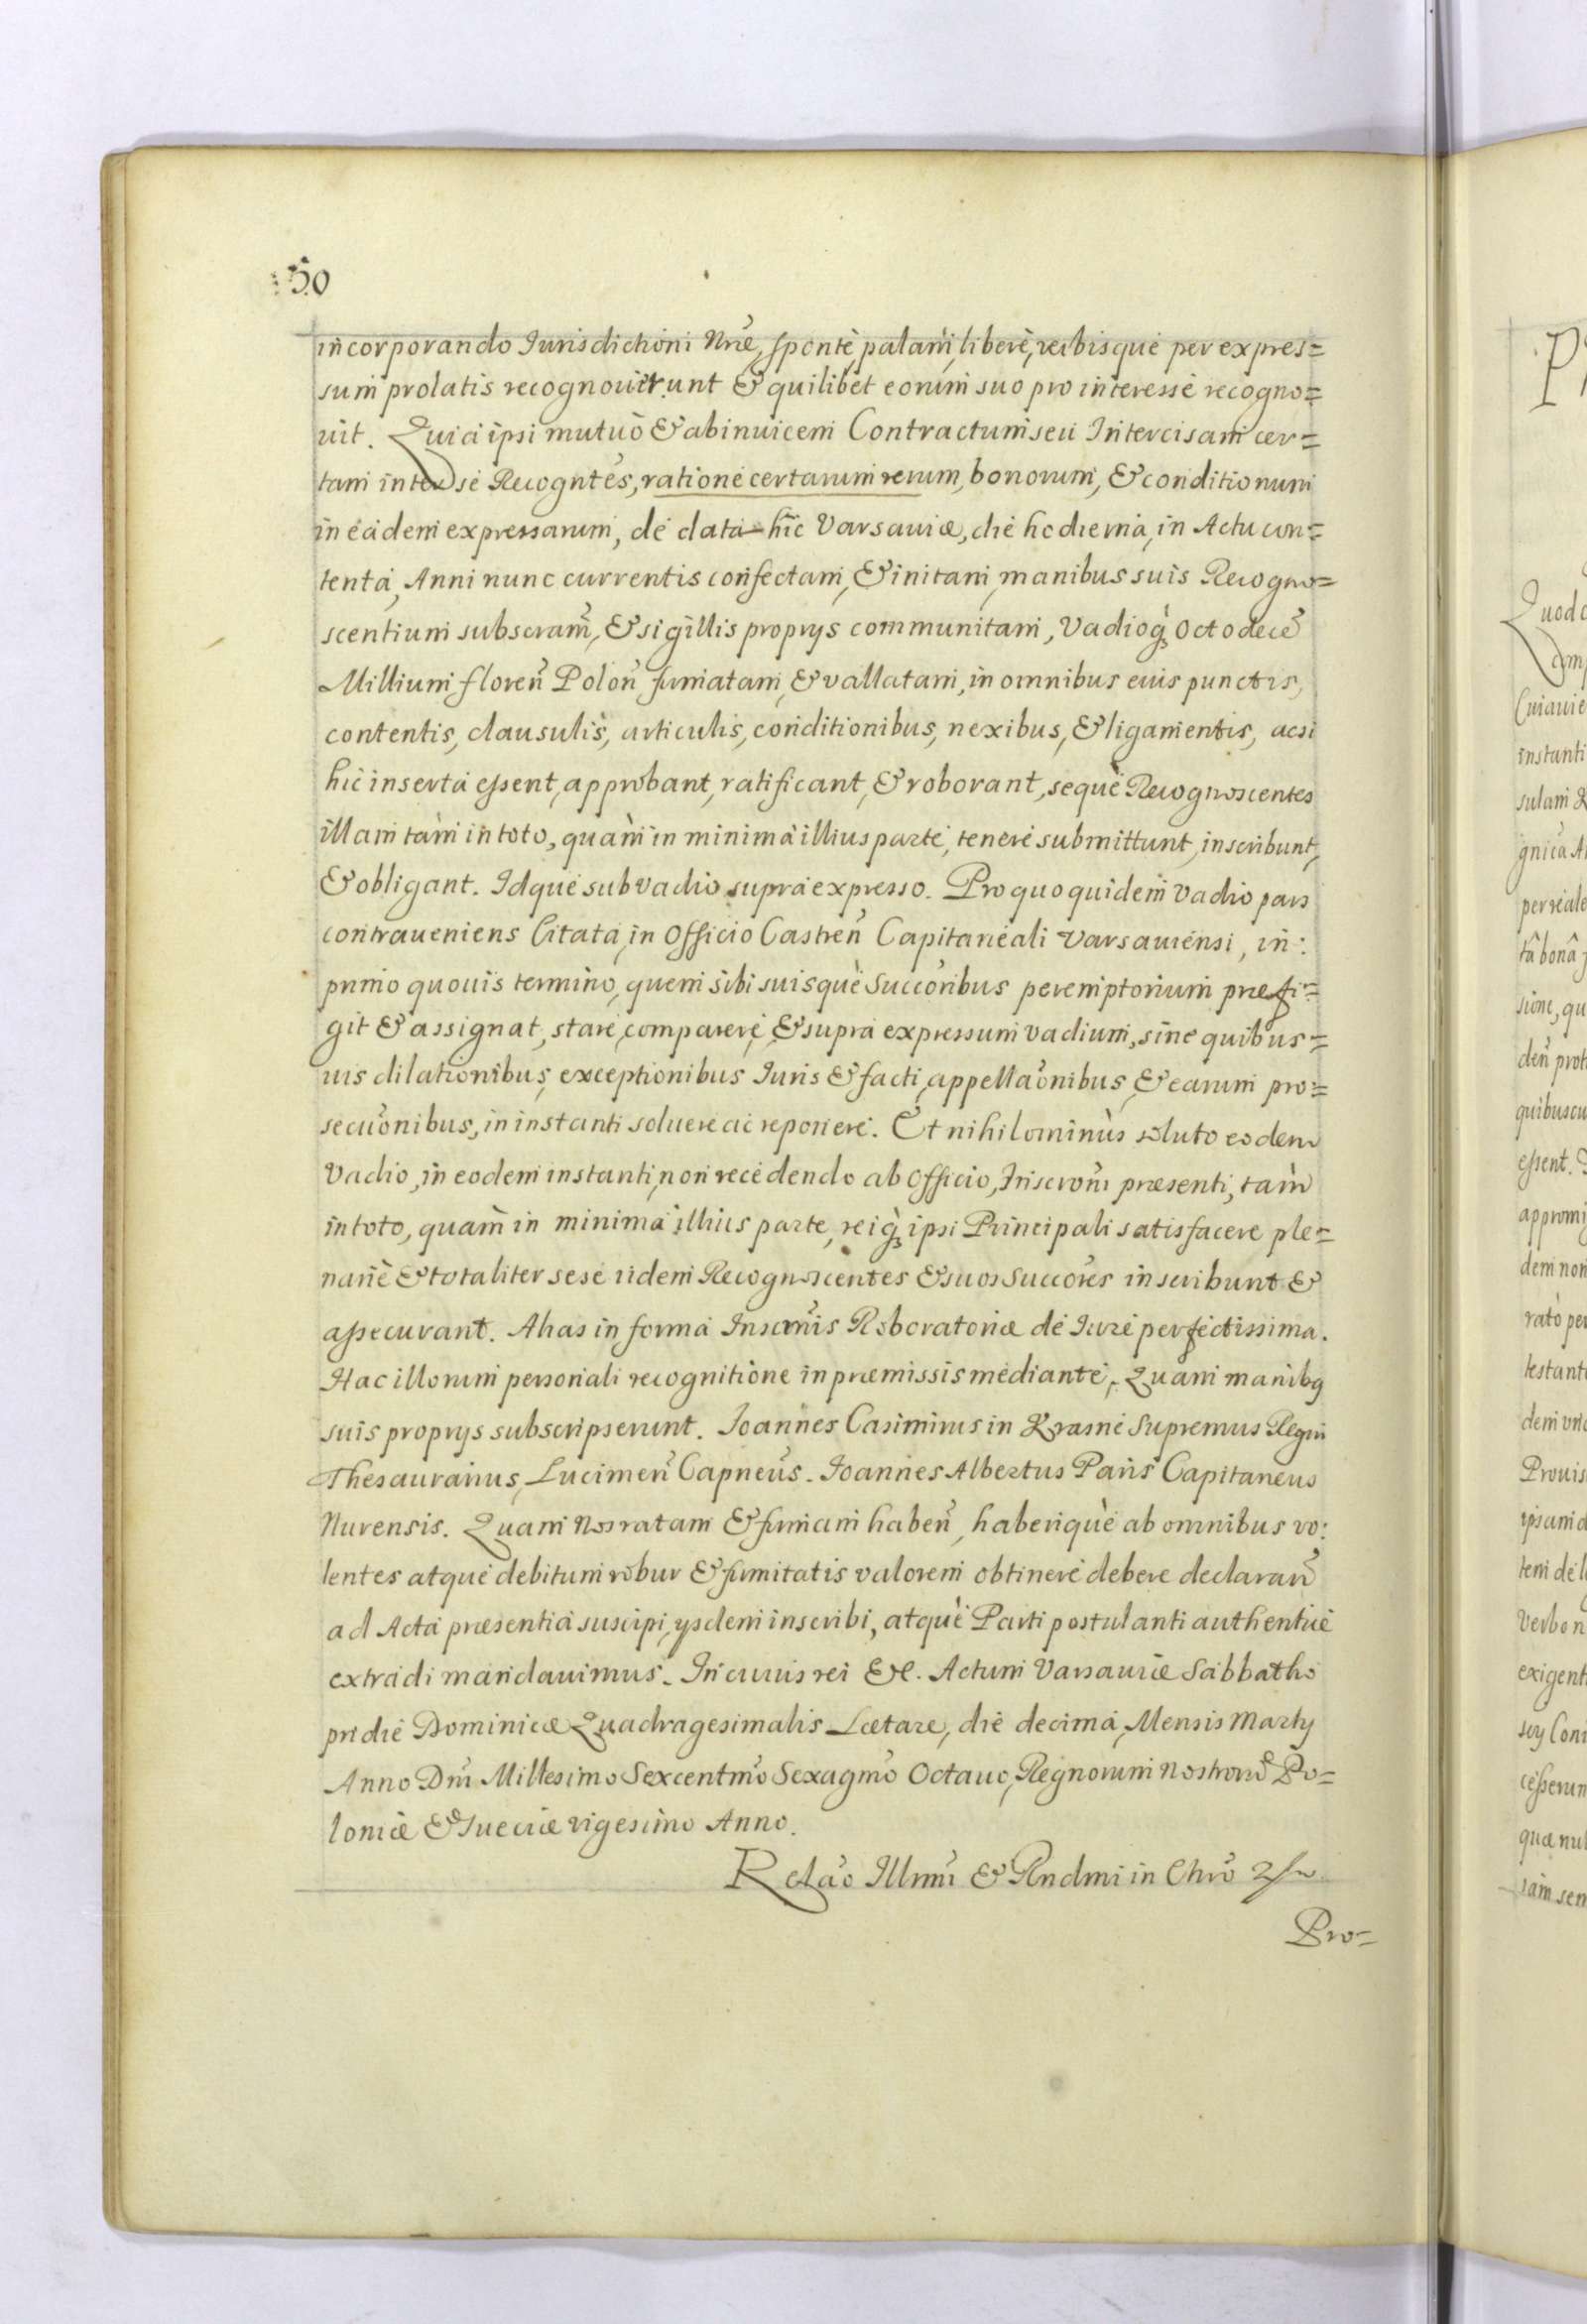 50
incorporando Jurisdictioni Nrae, sponte, palam, libere, verbisque per expres=
sum prolatis recognouerunt & quilibet eorum suo pro interesse recogno=
uit. Quia ipsi mutuò & abinuicem Contractum seu Intercisam cer=
tam inter se Recogntes, ratione certarum rerum, bonorum, & conditionum
in eadem expressarum, de data hic Varsauiæ, die hodierna, in Actu con=
tenta, Anni nunc currentis confectam, & initam, manibus suis Recogno=
scentium subscram, & sigillis proprys communitam, Vadioq3 Octodece
Millium floren Polon firmatam, & vallatam, in omnibus eius punctis,
contentis, clausulis, articulis, conditionibus, nexibus, & ligamentis, acsi
hic inserta essent, approbant, ratificant, & roborant, seque Recognoscentes
illam tam in toto, quàm in minima illius parte, tenere submittunt, inscribunt,
& obligant. Idque sub vadio supra expresso. Pro quo quidem Vadio pars
contraueniens Citata, in Officio Castren Capitaneali Varsauiensi, in:
primo quouis termino, quem sibi suisque Succoribus peremptorium præfi=
git & assignat, stare, comparere, & supra expressum vadium, sine quibus=
uis dilationibus, exceptionibus Iuris & facti, appellaonibus, & earum pro=
secuonibus, in instanti soluere ac reponere. Et nihilominus soluto eodem
Vadio, in eodem instanti, non recedendo ab Officio, Inscroni præsenti, tam
in toto, quàm in minima illius parte, reiq3 ipsi Principali satisfacere ple=
narie & totaliter sese iidem Recognoscentes & suos Succores inscribunt &
assecurant. Alias in forma Inscronis Roboratoriæ de Iure perfectissima.
Hac illorum personali recognitione in præmissis mediante, Quam manibq
suis proprys subscripserunt. Joannes Casimirus in Krasne Supremus Regni
Thesaurarius, Lucimen Capneus. Joannes Albertus Paris Capitaneus
Nurensis. Quam Nos ratam & firmam haben, haberique ab omnibus vo:
lentes atque debitum robur & firmitatis valorem obtinere debere declaran
ad Acta præsentia suscipi, ysdem inscribi, atque Parti postulanti authentice
extradi mandauimus. In cuius rei &c. Actum Varsauiæ Sabbatho
pridie Dominicæ Quadragesimalis Lætare, die decima, Mensis Marty
Anno Dni Millesimo Sexcentmo Sexagmo Octauo, Regnorum nostroru Po=
loniæ & Sueciæ vigesimo Anno.
Relao Illmi & Rndmi in Chro
Pro=